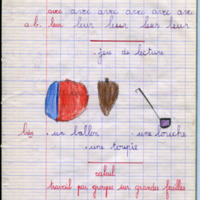 avec avec avec avec avec avec
a.b. leur leur leur leur leur
. jeu de lecture
lis . un ballon . une louche
. une toupie
calcul
travail par groupes sur grandes feuilles